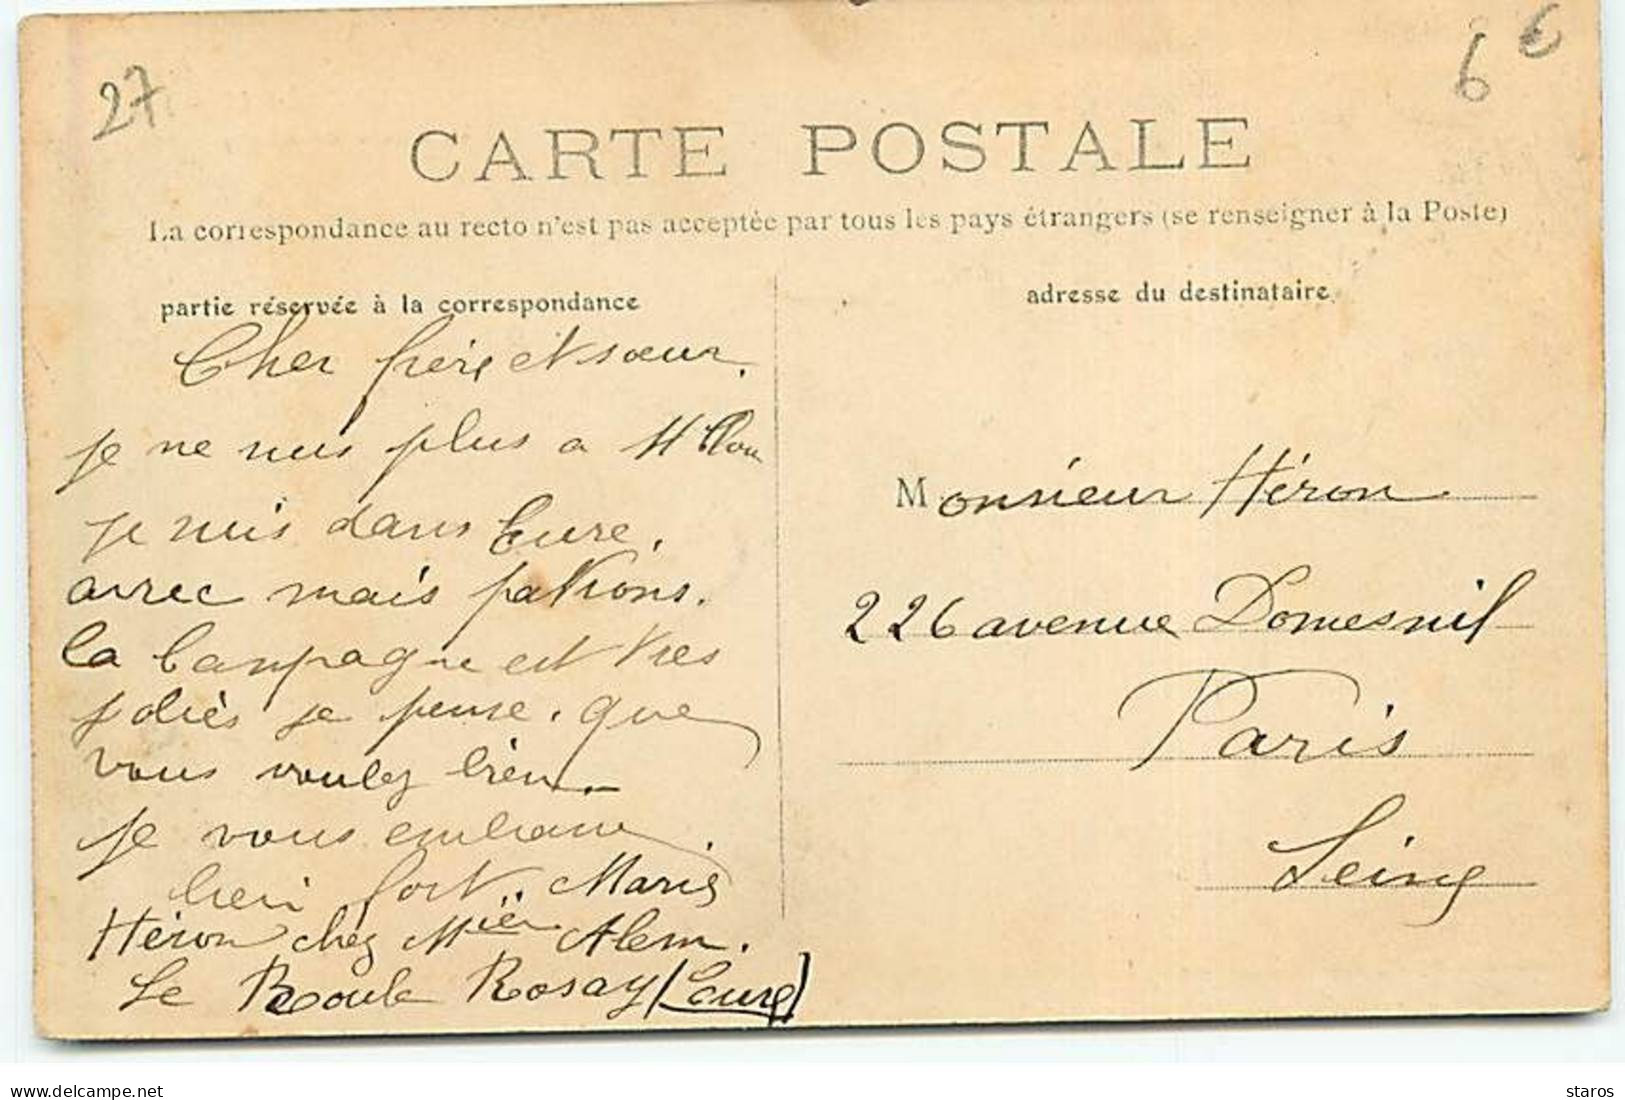 27
6 €
CARTE POSTALE
La correspondance au recto n'est pas acceptée par tous les pays étrangers (se renseigner à la Poste)
partie réservée à la correspondance
adresse du destinataire
Cher frère et sœur.
je ne suis plus a
je suis dans Eure.
avec mais patrons.
la Campagne est tres
joliès je pense. que
vous voulez bien
je vous embrasse
bien fort. Marie
Héron chéz Alem.
Le Boule Rosay (Eure)
Monsieur Héron
226 avenue Domesnil
Paris
Seine
delcampe.net
staros